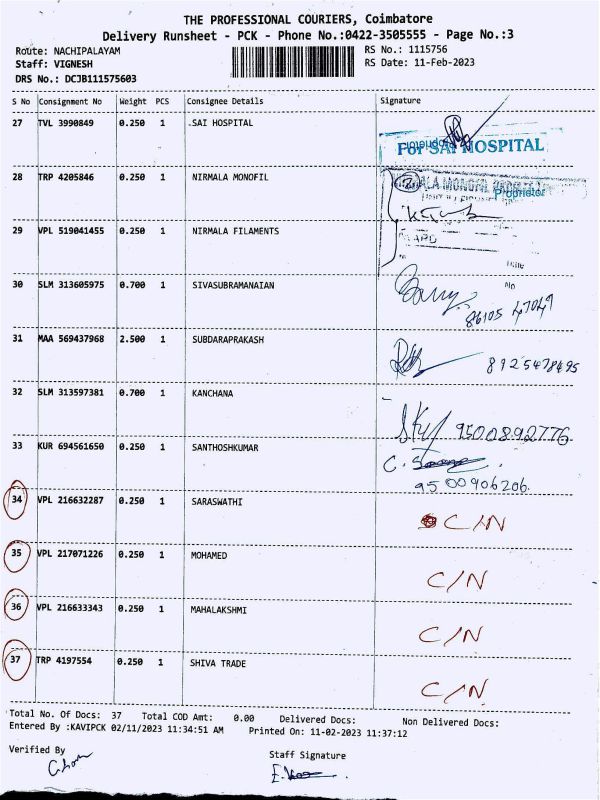 THE PROFESSIONAL COURIERS, Coimbatore
Delivery Runsheet - PCK - Phone No.:0422-3505555 - Page No.:3
Route: NACHIPALAYAM
Staff: VIGNESH
DRS No.: DCJB111575603
RS No.: 1115756
RS Date: 11-Feb-2023
S No Consignment No Weight PCS Consignee Details Signature
27 TVL 3990849 0.250 1 .SAI HOSPITAL
For SAI HOSPITAL
Proprietor
28 TRP 4205846 0.250 1 NIRMALA MONOFIL
29 VPL 519041455 0.250 1 NIRMALA FILAMENTS
30 SLM 313605975 0.700 1 SIVASUBRAMANAIAN
86105 47049
31 MAA 569437968 2.500 1 SUBDARAPRAKASH
8925478495
32 SLM 313597381 0.700 1 KANCHANA
9500892776
33 KUR 694561650 0.250 1 SANTHOSHKUMAR
9500906206
34 VPL 216632287 0.250 1 SARASWATHI C/N
35 VPL 217071226 0.250 1 MOHAMED C/N
36 VPL 216633343 0.250 1 MAHALAKSHMI C/N
37 TRP 4197554 0.250 1 SHIVA TRADE C/N
Total No. Of Docs: 37 Total COD Amt: 0.00 Delivered Docs: Non Delivered Docs:
Entered By :KAVIPCK 02/11/2023 11:34:51 AM Printed On: 11-02-2023 11:37:12
Verified By
Staff Signature